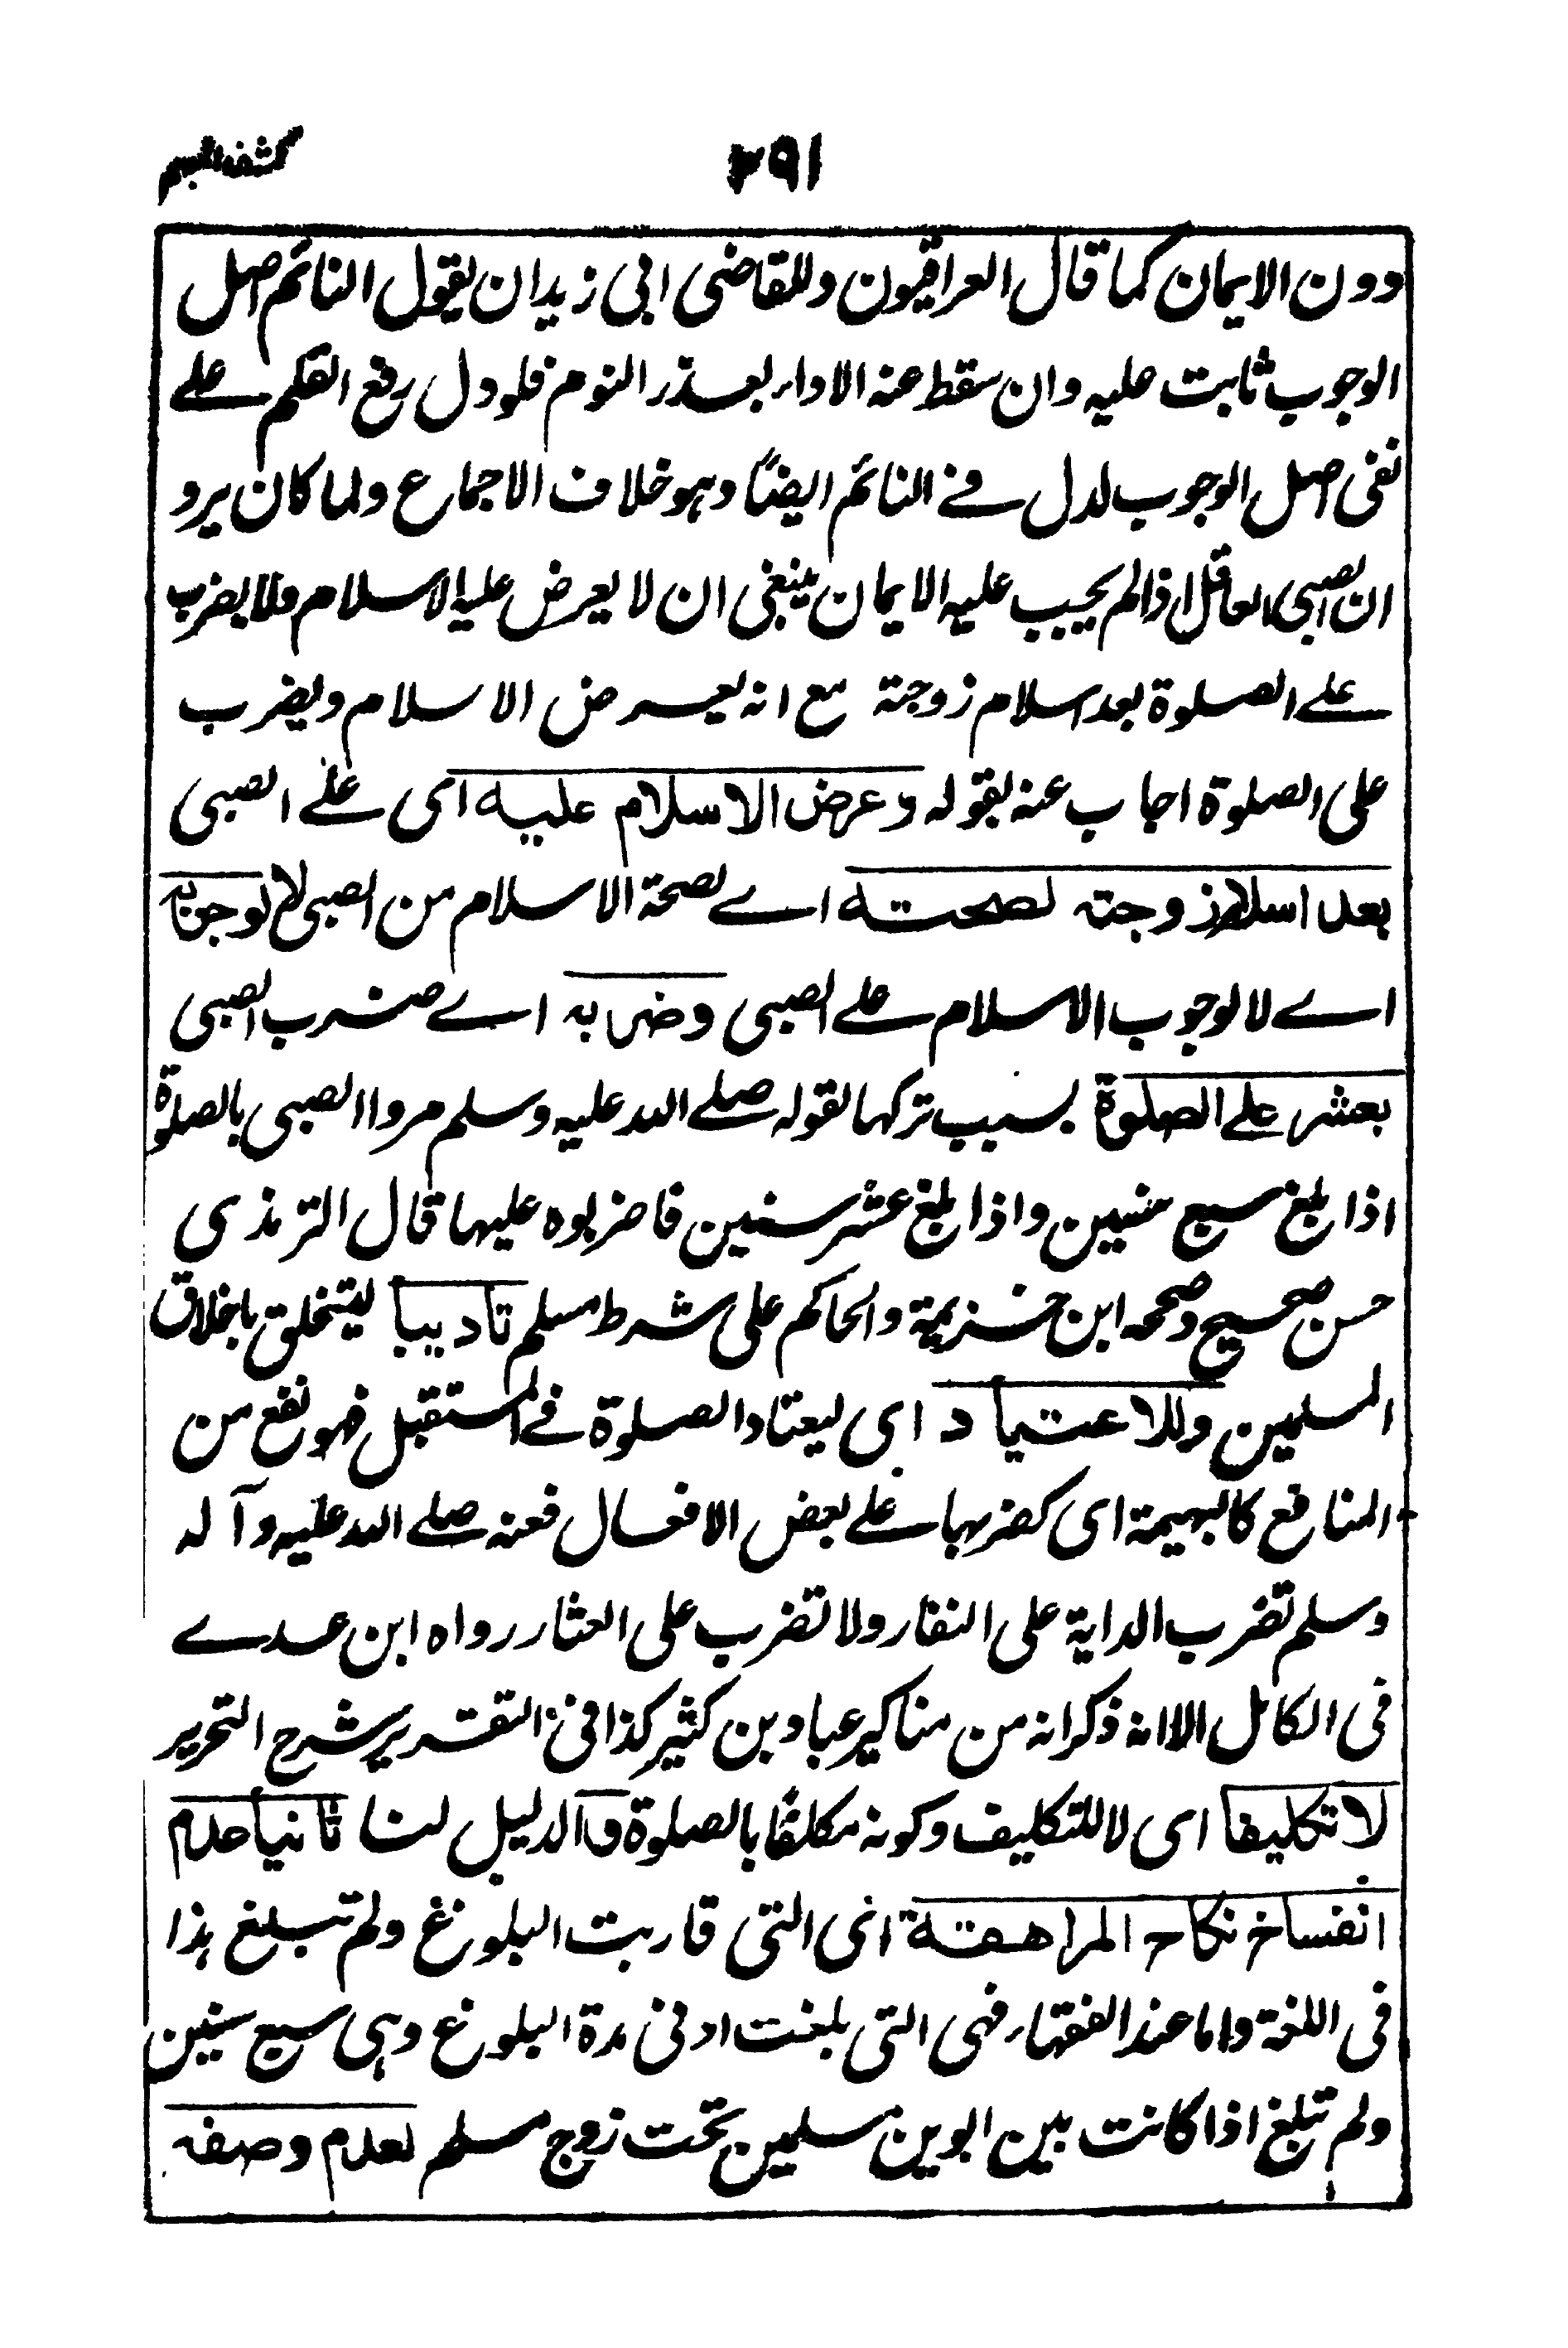 كشف المبهم
٢٩١
دون الايمان كما قال العراقيون وللقاضى ابى زيد ان يقول النائم اصل
الوجوب ثابت عليه وان سقط عنه الاداء بعذر النوم فلو دل رفع القلم على
نفى اصل الوجوب لدل فى النائم ايضًا وهو خلاف الاجماع ولما كان يرد
ان الصبى العاقل اذا لم يجب عليه الايمان ينبغى ان لا يعرض عليه الاسلام فلا يضرب
على الصلوة بعد اسلام زوجته مع انه يعرض الاسلام ويضرب
على الصلوة اجاب عنه بقوله وعرض الاسلام عليه اى على الصبى
بعد اسلام زوجته لصحته اى لصحة الاسلام من الصبى لا لوجوبه
اى لا لوجوب الاسلام على الصبى وضرابه اى ضرب الصبى
بعشر على الصلوة بسبب تركها لقوله صلى الله عليه وسلم مروا الصبى بالصلوة
اذا بلغ سبع سنين واذا بلغ عشر سنين فاضربوه عليها قال الترمذى
حسن صحيح وصححه ابن خزيمة والحاكم على شرط مسلم تاديبا ليتخلق باخلاق
المسلمين وللاعتياد اى ليعتاد الصلوة فى المستقبل فهو نفع من
المنافع كالبهيمة اى كضربها على بعض الافعال فعنه صلى الله عليه وآله
وسلم تضرب الدابة على النفار ولا تضرب على العثار رواه ابن عدى
فى الكامل الا انه ذكر انه من مناكير عباد بن كثير كذا فى التقرير شرح التحرير
لا تكليفا اى لا للتكليف وكونه مكلفًا بالصلوة والدليل لنا ثانيا عدم
انفساخ نكاح المراهقة اى التى قاربت البلوغ ولم تبلغ هذا
فى اللغة واما عند الفقهاء فهى التى بلغت ادنى مدة البلوغ وهى سبع سنين
ولم تبلغ اذا كانت بين ابوين مسلمين تحت زوج مسلم لعدم وصفه